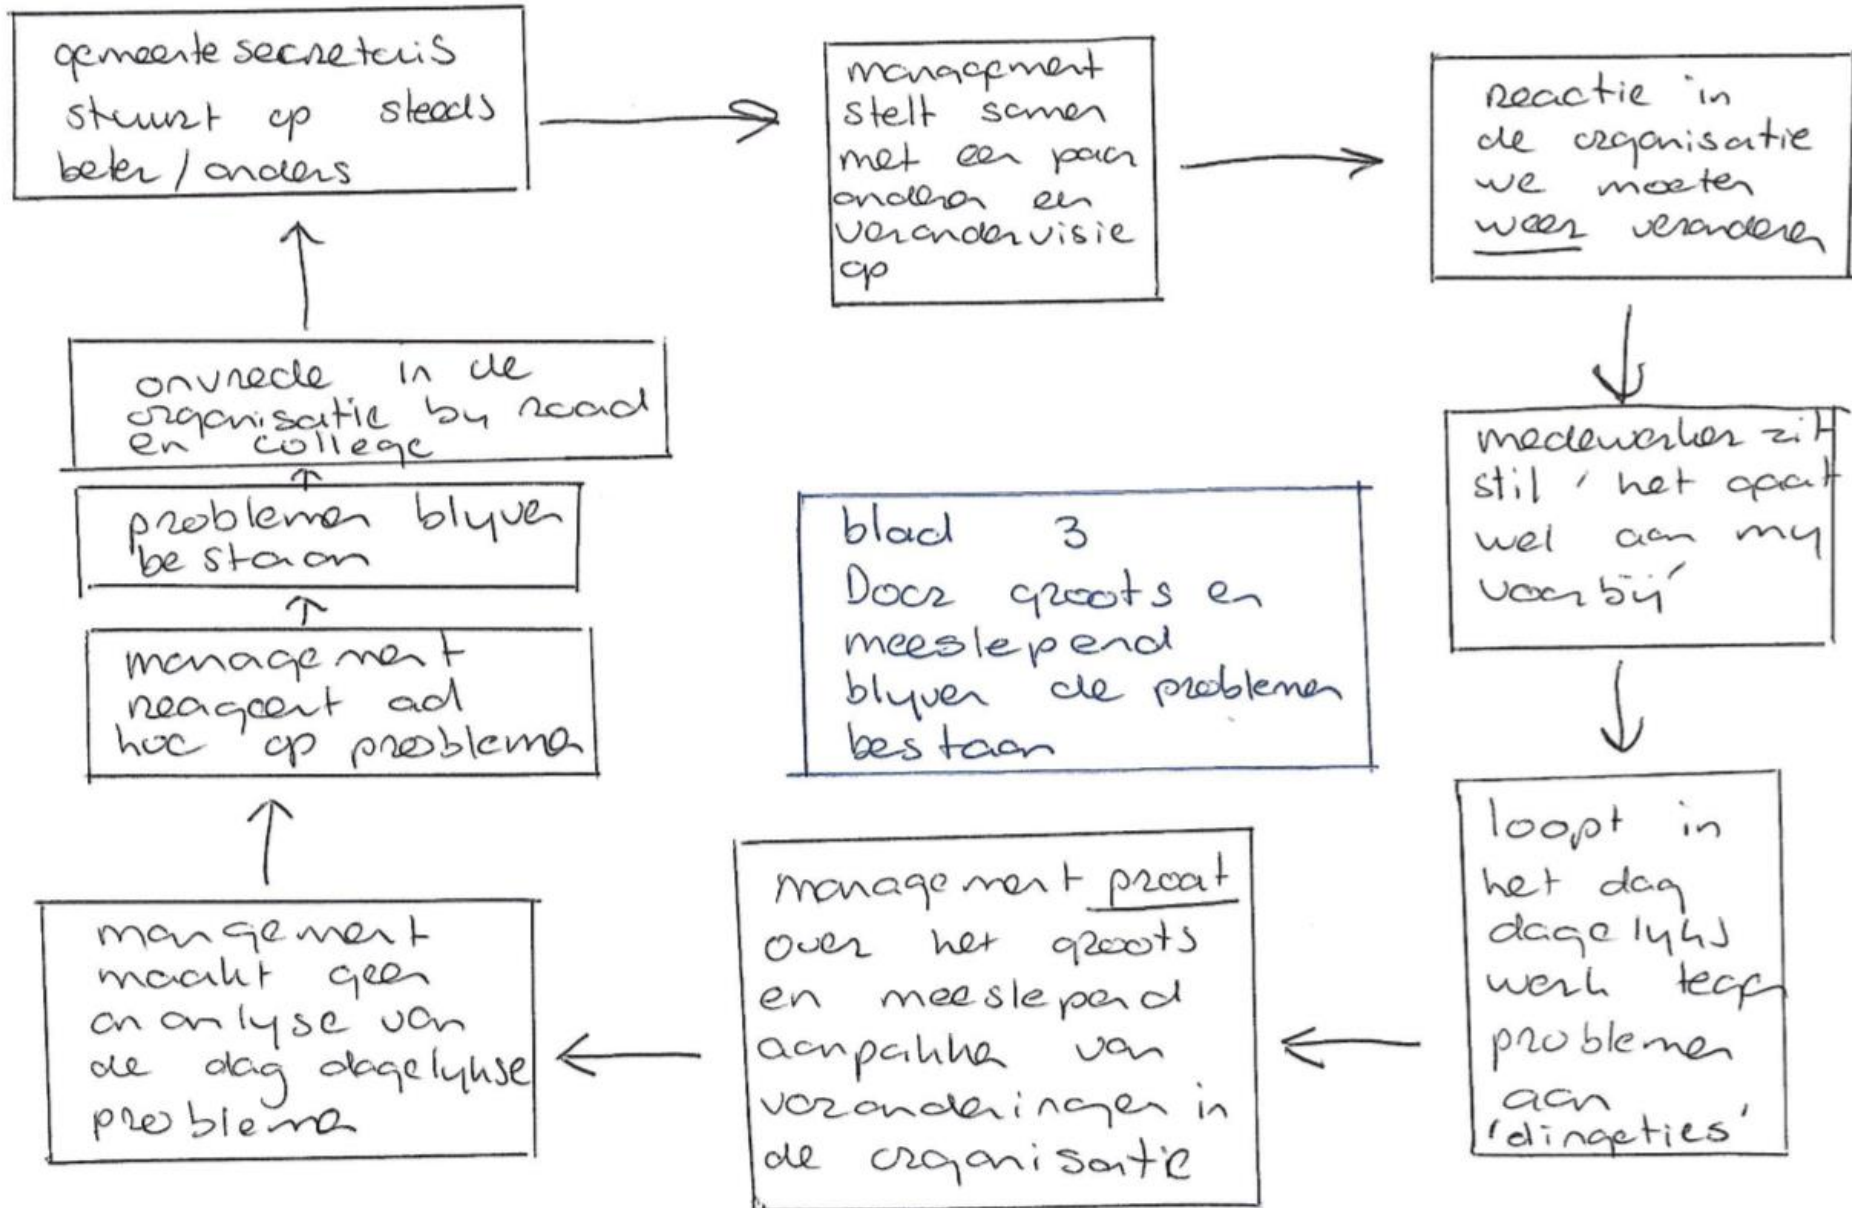 gemeente secretaris
stuurt op steeds
beter / anders
management
stelt samen
met een paar
anderen een
verandervisie
op
reactie in
de organisatie
we moeten
weer veranderen
medewerker zit
stil 'het gaat
wel aan mij
voorbij'
loopt in
het dag
dagelijks
werk tegen
problemen
aan
'dingeties'
management praat
over het groots
en meeslepend
aanpakken van
veranderingen in
de organisatie
mangement
maakt geen
ananlyse van
de dag dagelijkse
problemen
management
reageert ad
hoc op problemen
problemen blijven
bestaan
onvrede in de
organisatie bij raad
en college
blad 3
Door groots en
meeslepend
blijven de problemen
bestaan